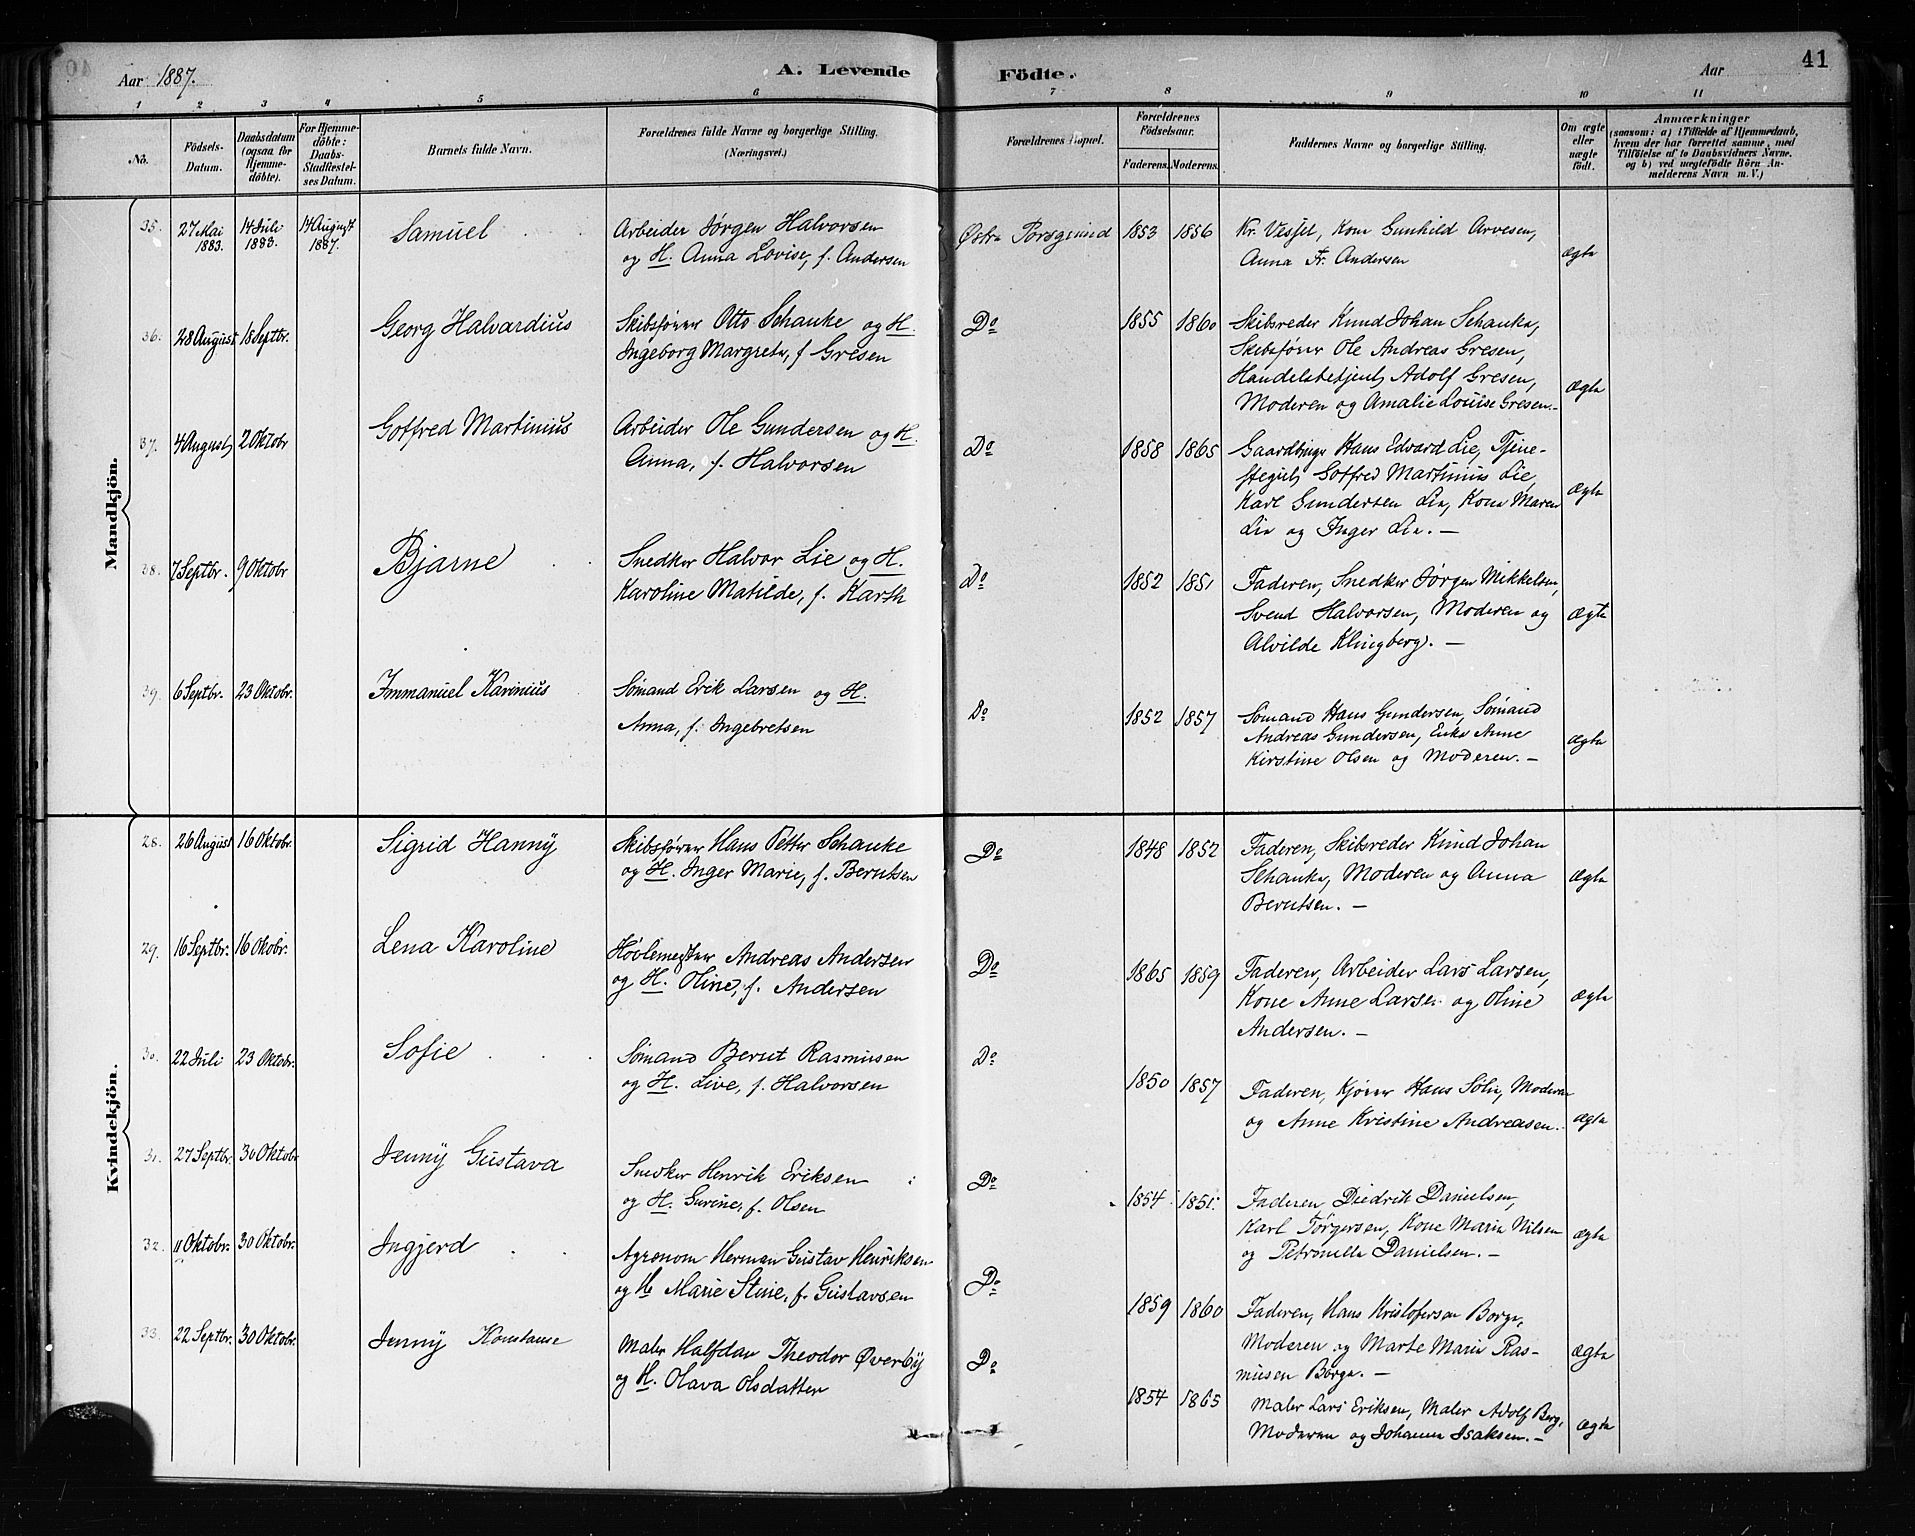 Aar 1887.
A. Levende Födte.
Aar
41
1 2 3 4 5 6 7 8 9 10 11
No.
Födsels-Datum.
Daabsdatum (ogsaa for Hjemme-döbte).
For Hjemme-döbte: Daabs-Stadfæstel-ses Datum.
Barnets fulde Navn.
Forældrenes fulde Navne og borgerlige Stilling. (Næringsvei.)
Forældrenes Bopæl.
Forældrenes Födselsaar.
Faderens. Moderens.
Faddernes Navne og borgerlige Stilling.
Om ægte eller uægte födt.
Anmærkninger
(saasom: a) i Tilfælde af Hjemmedaab,
hvem der har forrettet samme, med
Tilföielse af to Daabsvidners Navne.
og b) ved uægtefödte Börn An-
melderens Navn m. V.)
Mandkjön.
35. 27 Mai 1883. 14 Juli 1883. 14 August 1887. Samuel
Arbeider Jørgen Halvorsen
og H. Anna Lovise, f. Andersen
Østre Porsgrund 1853 1856
Kr. Vessel, Kone Gunhild Arvesen,
Anna Fr. Andersen
ægte
36. 28 August 18 Septbr. Georg Halvardius
Skibsfører Otto Schanke og H.
Ingeborg Margrete, f Gresen
Do 1855 1860
Skibsreder Knud Johan Schanke,
Skibsfører Ole Andreas Gresen,
Handelsbetjent Adolf Gresen,
Moderen og Amalie Louise Gresen.-
Ægte
37. 4 August 2 Oktobr Gotfred Martinius
Arbeider Ole Gundersen og H.
Anna, f. Halvorsen
Do 1858 1865
Gaardbruger Hans Edvard Lie, Tjene-
stegut Gotfred Martinius Lie,
Karl Gundersen Lie, Kone Maren
Lie og Inger Lie. —
Ægte
38. 7 Septbr. 9 Oktobr Bjarne
Snedker Halvor Lie og H.
Karoline Matilde, f. Karth
Do 1852 1851
Faderen, Snedker Jørgen Mikkelsen,
Svend Halvorsen, Moderen og
Alvilde Klingberg. —
Ægte
39. 6 Septbr. 23 Oktobr. Immanuel Karinius
Sømand Erik Larsen og H.
Anna, f. Ingebretsen
Do 1852 1857
Sømand Hans Gundersen, Sømand
Andreas Gundersen, Enke Anne
Kirstine Olsen og Moderen. —
Ægte
Kvindekjön.
28. 26 August 16 Oktobr. Sigrid Hanny
Skibsfører Hans Petter Schanke
og H. Inger Marie, f. Berntsen
Do 1848 1852
Faderen, Skibsreder Knud Johan
Schanke, Moderen og Anna
Berntsen. —
Ægte
29. 16 Septbr. 16 Okobr. Lena Karoline
Høvlemester Andreas Andersen
og H. Oline, f. Andersen
Do 1865 1859
Faderen, Arbeider Lars Larsen,
Kone Anne Larsen og Oline
Andersen. —
Ægte
30. 22 Juli 23 Oktobr. Sofie
Sømand Bernt Rasmusen
og H. Live, f. Halvorsen
Do 1850 1857
Faderen, Kjører Hans Solie, Moderen
og Anne Kristine Andreasen.
Ægte
31. 27 Septbr. 30 Oktobr Jenny Gustava
Snedker Henrik Eriksen
og H. Gurine, f. Olsen
Do 1854 1851.
Faderen, Diedrik Danielsen,
Karl Torgersen, Kone Maria Nilsen
og Petronella Danielsen. —
Ægte
32. 11 Oktobr. 30 Oktobr. Ingjerd
Agronom Herman Gustav Henriksen
og H Marie Stine, f. Gustavsen
Do 1859 1860
Faderen, Hans Kristofersen Borge,
Moderen og Marte Marie Ras-
musen Borge. —
Ægte
33. 22 Septbr. 30 Oktobr. Jenny Konstanse
Maler Halfdan Theodor Øverby
og H. Olava Olsdatter
Do 1854 1865
Maler Lars Eriksen, Maler Adolf Berg,
Moderen og Johanne Isaksen. —
Ægte